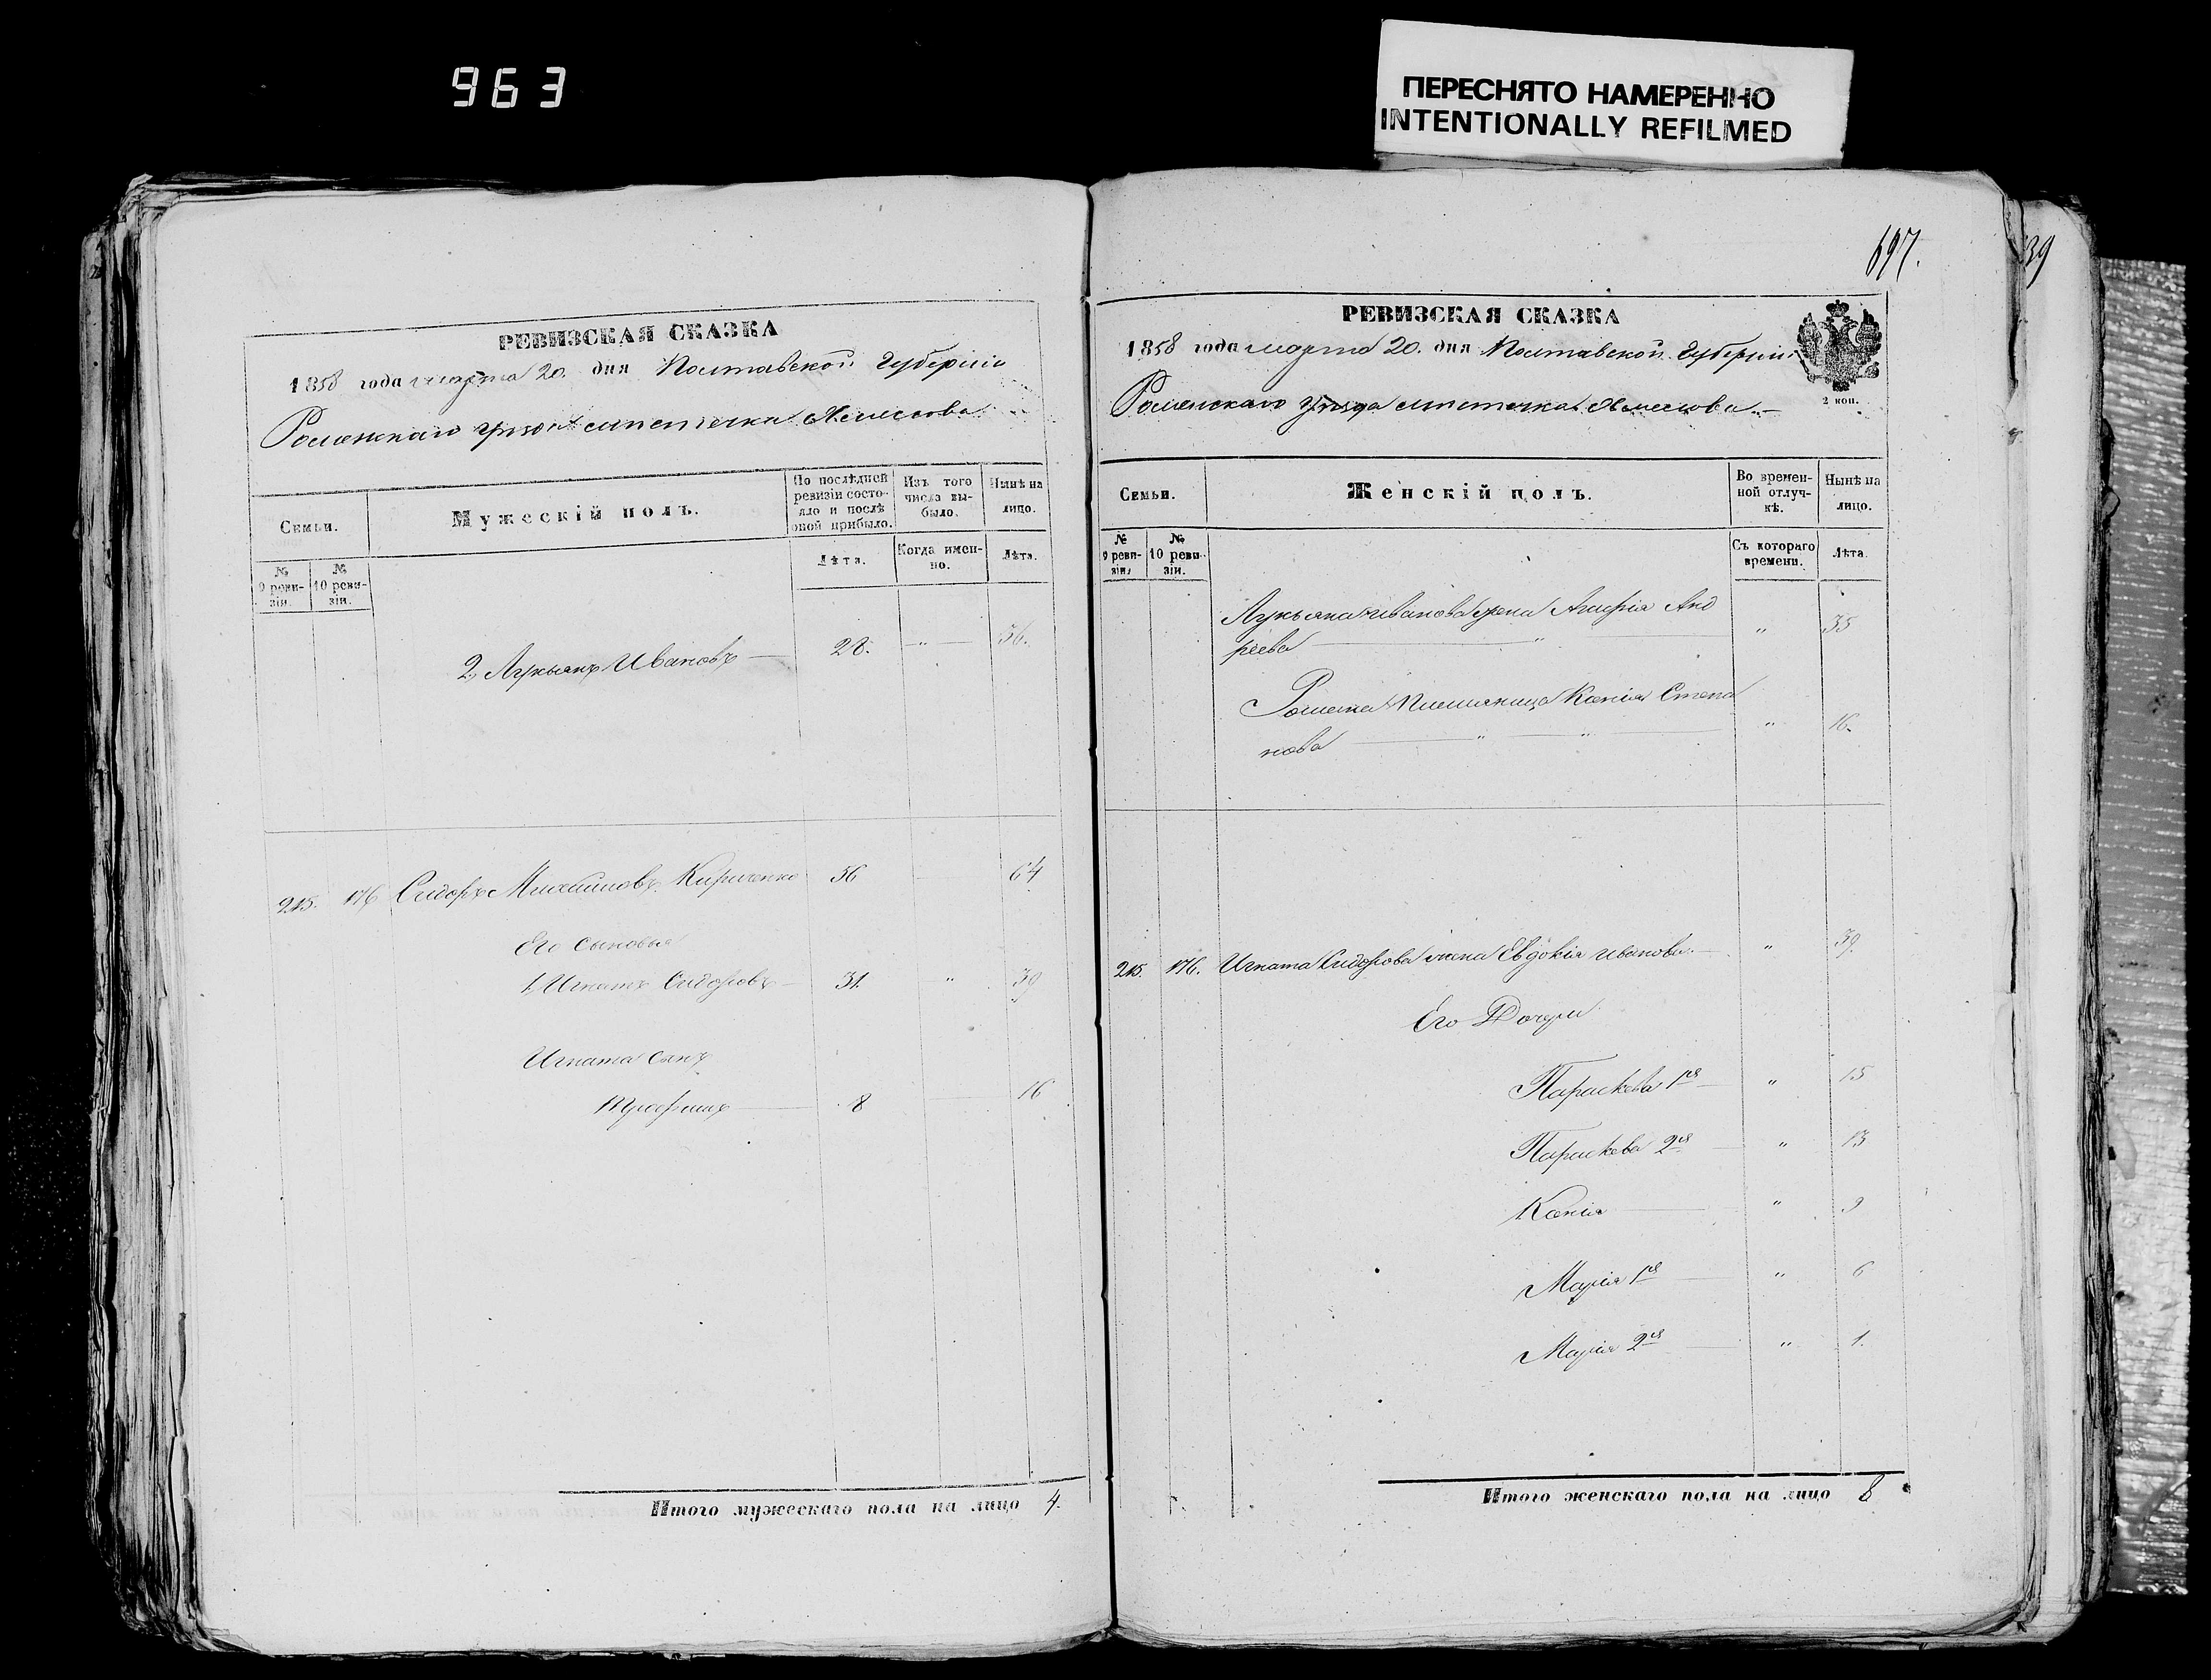 963
ПЕРЕСНЯТО НАМЕРЕННО
INTENTIONALLY REFILMED
РЕВИЗСКАЯ СКАЗКА
1858 года марта 20. дня Полтавской Губерніи
Роменскаго уѣзда мѣстечка
Семьи.
Мужескій полъ.
По послѣдней ревизіи состояло и послѣ оной прибыло.
Изъ того числа выбыло.
Нынѣ на лицо.
№ 9 ревизіи.
№ 10 ревизіи.
Лѣта.
Когда именно.
Лѣта.
2, Лукьянъ Ивановъ — 28. " — 36.
215. 176 Сидоръ Кириченко 56 64
Его сыновья
1, Игнатъ Сидоровъ — 31. " 39
Игната сынъ
8 16
Итого мужескаго пола на лицо 4.
697.
39
РЕВИЗСКАЯ СКАЗКА
1858 года марта 20. дня Полтавской Губерніи
2 коп.
Роменскаго уѣзда мѣстечка
Семьи.
Женскій полъ.
Во временной отлучкѣ.
Нынѣ на лицо.
№ 9 ревизіи.
№ 10 ревизіи.
Съ котораго времени.
Лѣта.
Лукьяна Иванова жена Агафія Анд
рѣева — " — " 35
племянница Ксенія Степа
нова — " — " — " 16.
215. 176. Игната Сидорова жена Евдокія Иванова — " 39.
Его Дочери
Параскева 1я — " 15
Параскева 2я — " 13
Ксенія — " 9
Марія 1я — " 6
Марія 2я — " 1.
Итого женскаго пола на лицо 8